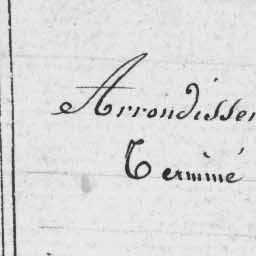 Arrondissem
Terminé